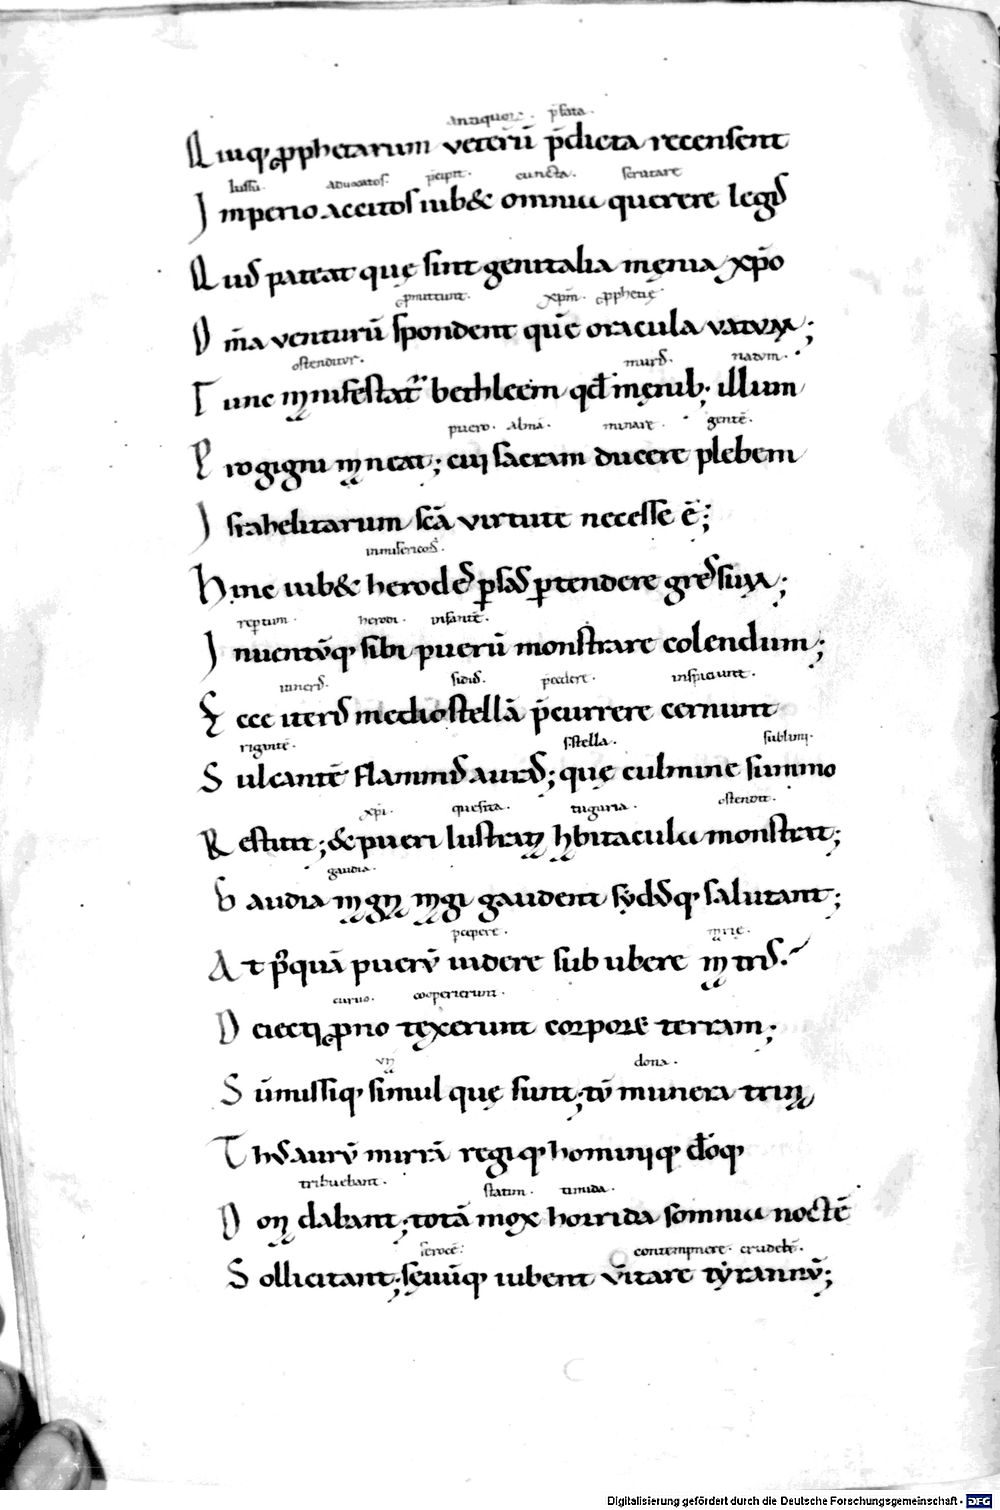 antiquorū. p̄fata.
Quiq; ꝓphetarum veterū p̄dicta recensent
Iussu. aduocatos. p̄cipit. cuncta. scrutare
Imperio accitos iub& omnia querere legis
Quis pateat quę sint genitalia męnia xp̄o
ꝓmittunt. xp̄m. ꝓphetię
Om̄a venturū spondent quē oracula vatum;
ostenditur. muris. natum.
Tunc manifestat᷑ bethleem qd̄ męnib; illum
puero. almā. minare. gentē.
Progigni maneat; cui sacram ducere plebem
Israhelitarum scā virtute necesse ē;
inmisericors.
Hinc iub& herodes ꝑsas ꝑtendere gressum;
repertum. herodi. infantē.
Inuentūq; sibi puerū monstrare colendum;
itineris. sidus. p̄cedere. inspiciunt.
Ecce iteris medio stellā p̄currere cernunt
rigante. s. stella. sublimi.
Sulcantē flammis auras; quę culmine summo
xp̄i. quesita. tuguria. ostendit.
Restitit; & pueri lustrata habitacula monstrat;
gaudia.
Gaudia magna magi gaudent sydusq; salutant;
peperere. marie.
At p̄quā puerū uidere sub ubere matris.
curuo. cooperierunt.
Deiecti ꝓno texerunt corpore terram;
una dona.
Sūmissiq; simul quę sunt; tū munera trina
Thus aurū mirrā regiq; hominiq; dōq;
tribuebant. statim. timida.
Dona dabant; totā mox horrida somnia noctē
ferocē. contempnere. crudelē.
Sollicitant; sęuūq; iubent vitare tyrannū;
Digitalisierung gefördert durch die Deutsche Forschungsgemeinschaft - DFG